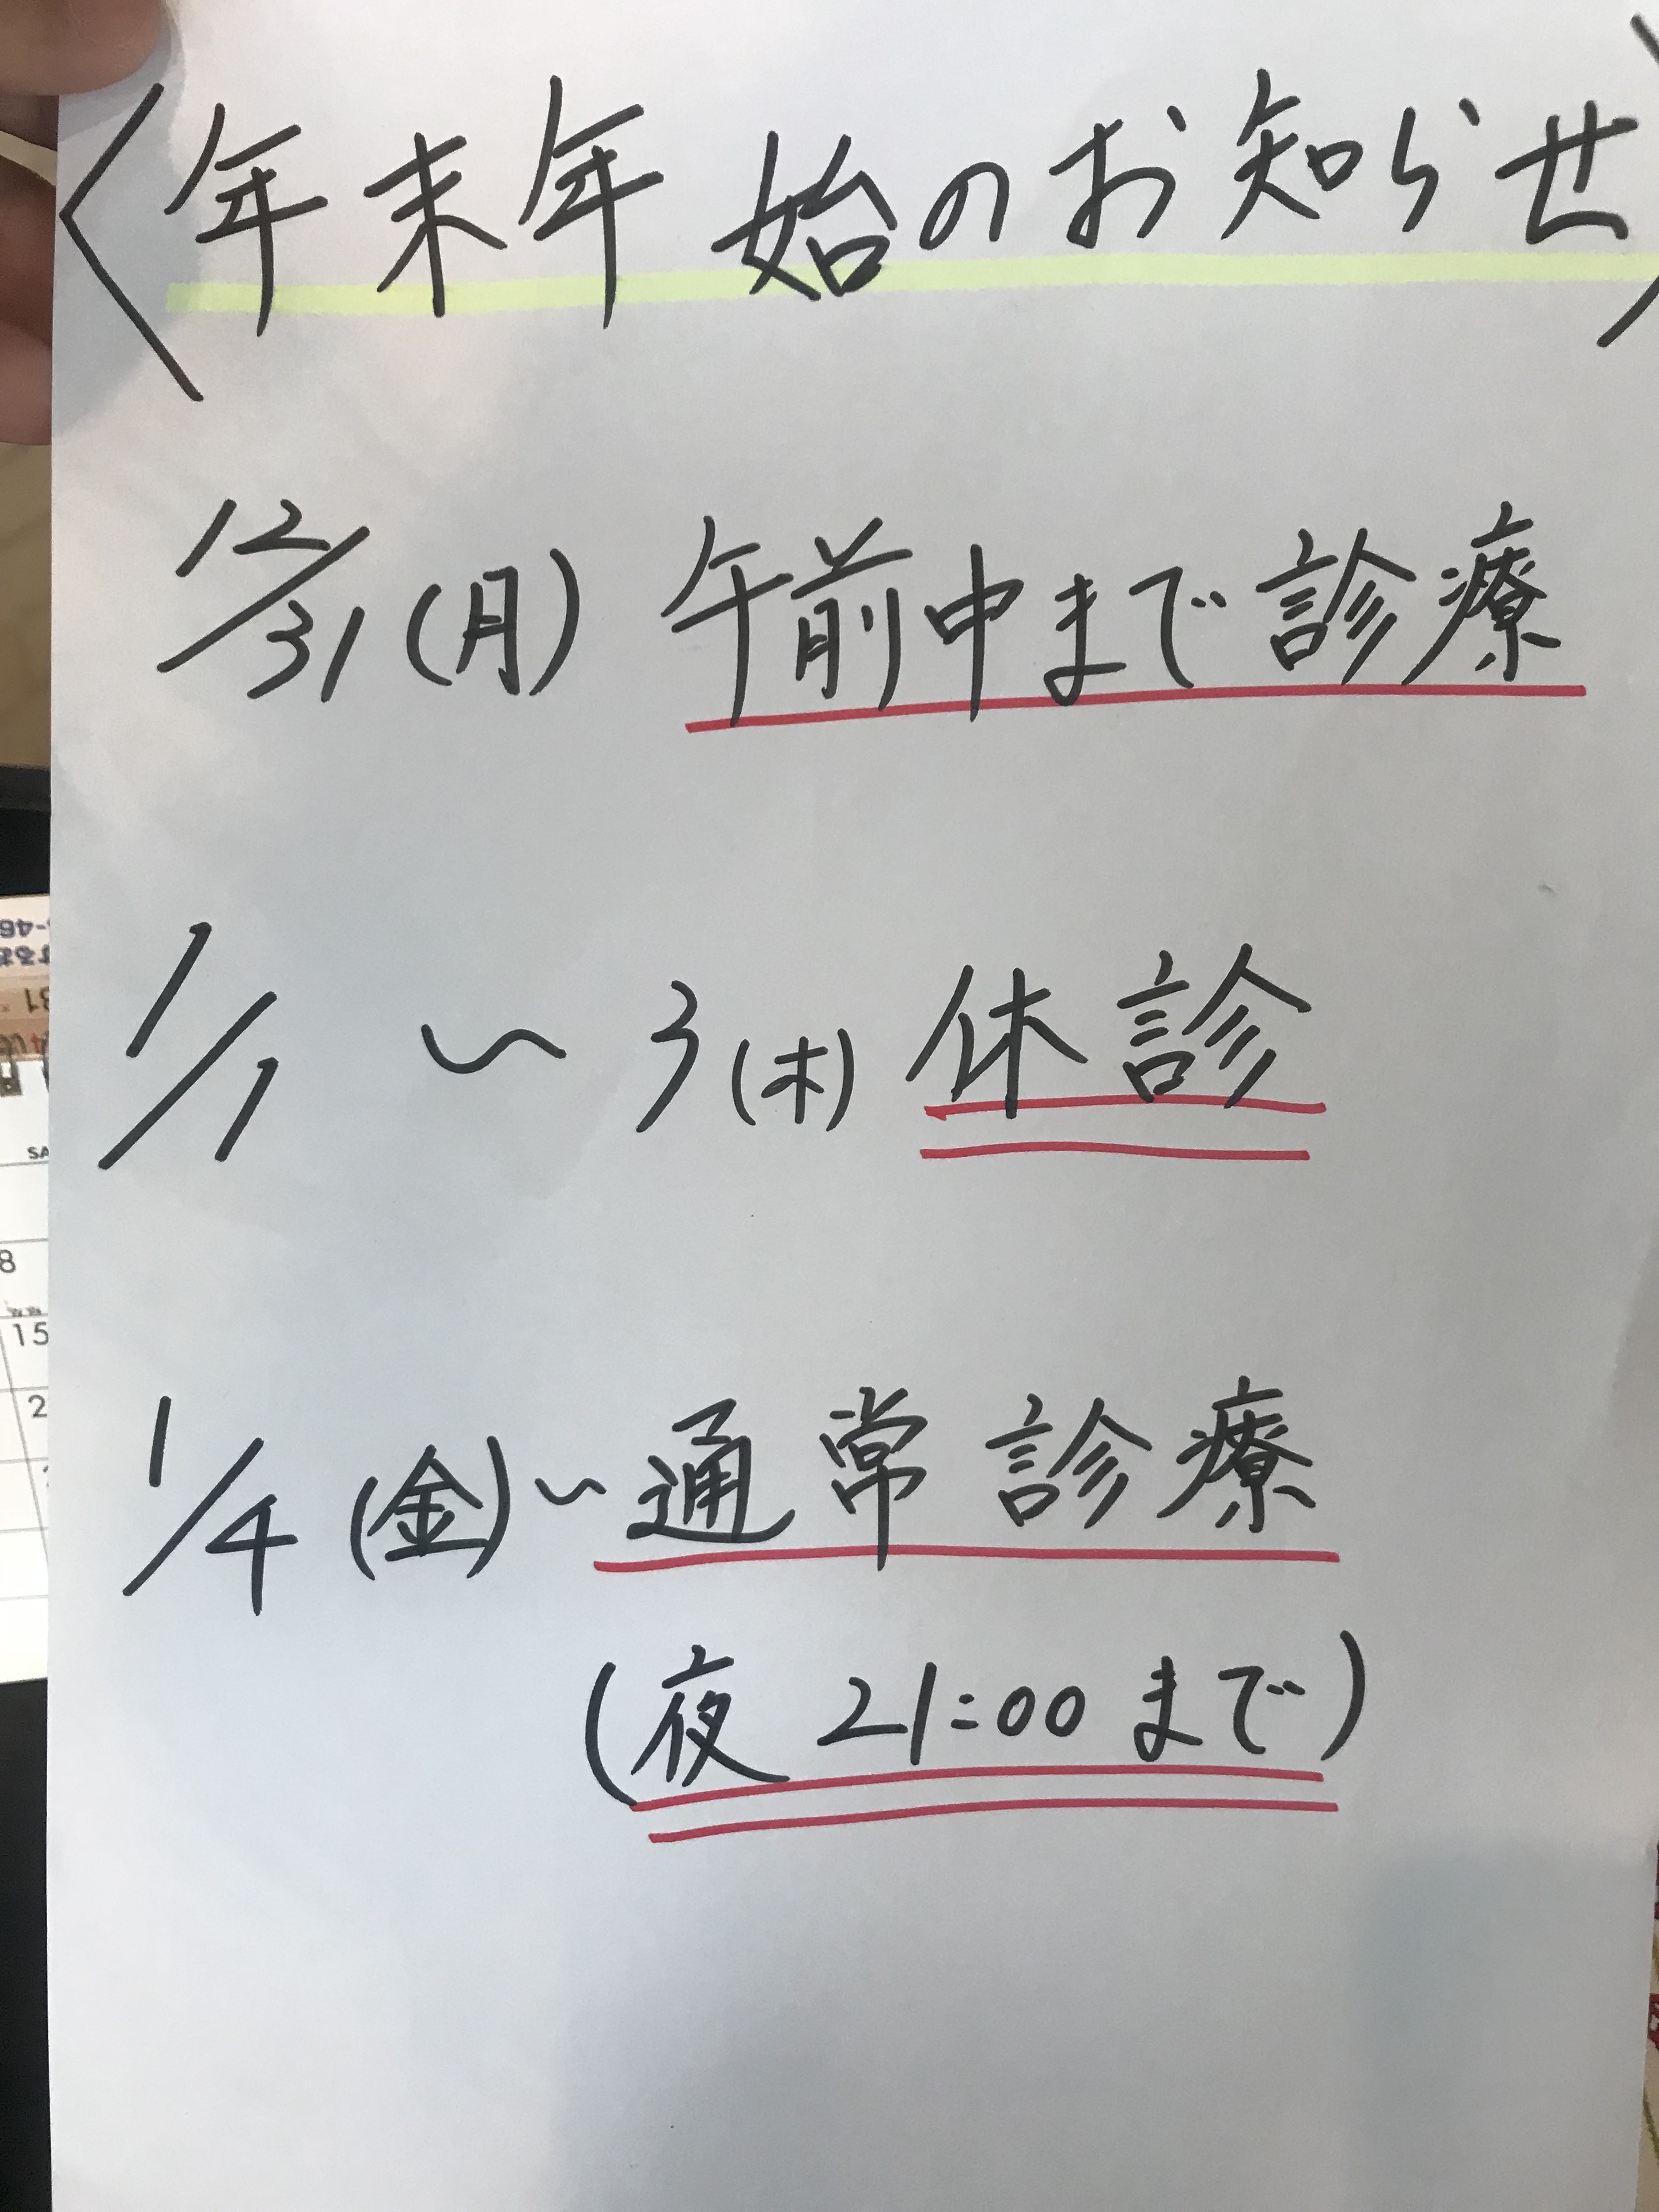 〈年末年始のお知らせ〉
12/31(月) 午前中まで診療
1/1 〜 3(木) 休診
1/4(金)〜通常診療
(夜 21:00 まで)
SA
8
15